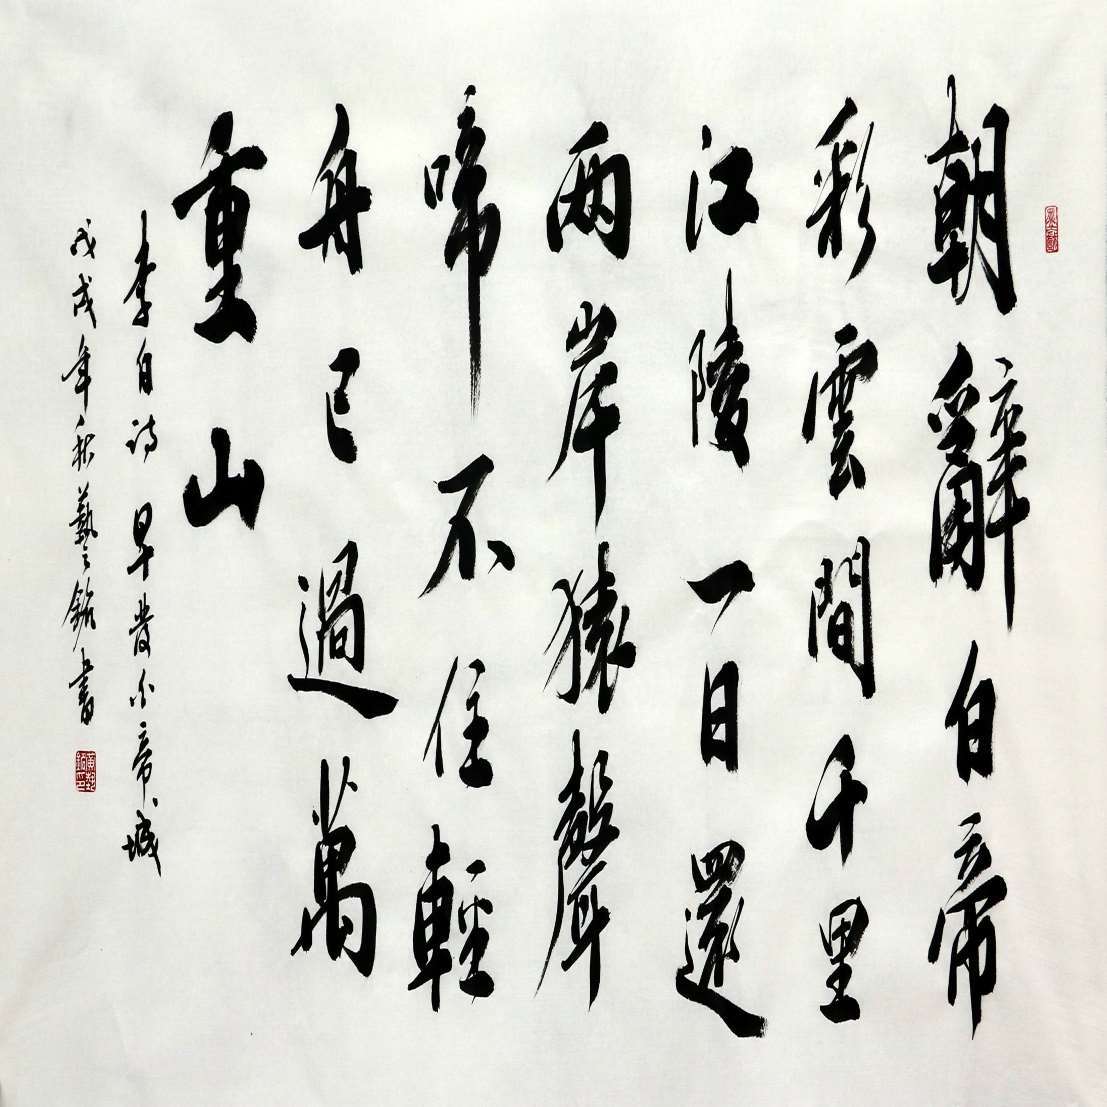 朝辭白帝
彩雲間千里
江陵一日還
兩岸猿聲
啼不住輕
舟已過萬
重山
李白詩 早發白帝城
戊戌年秋藝銘書